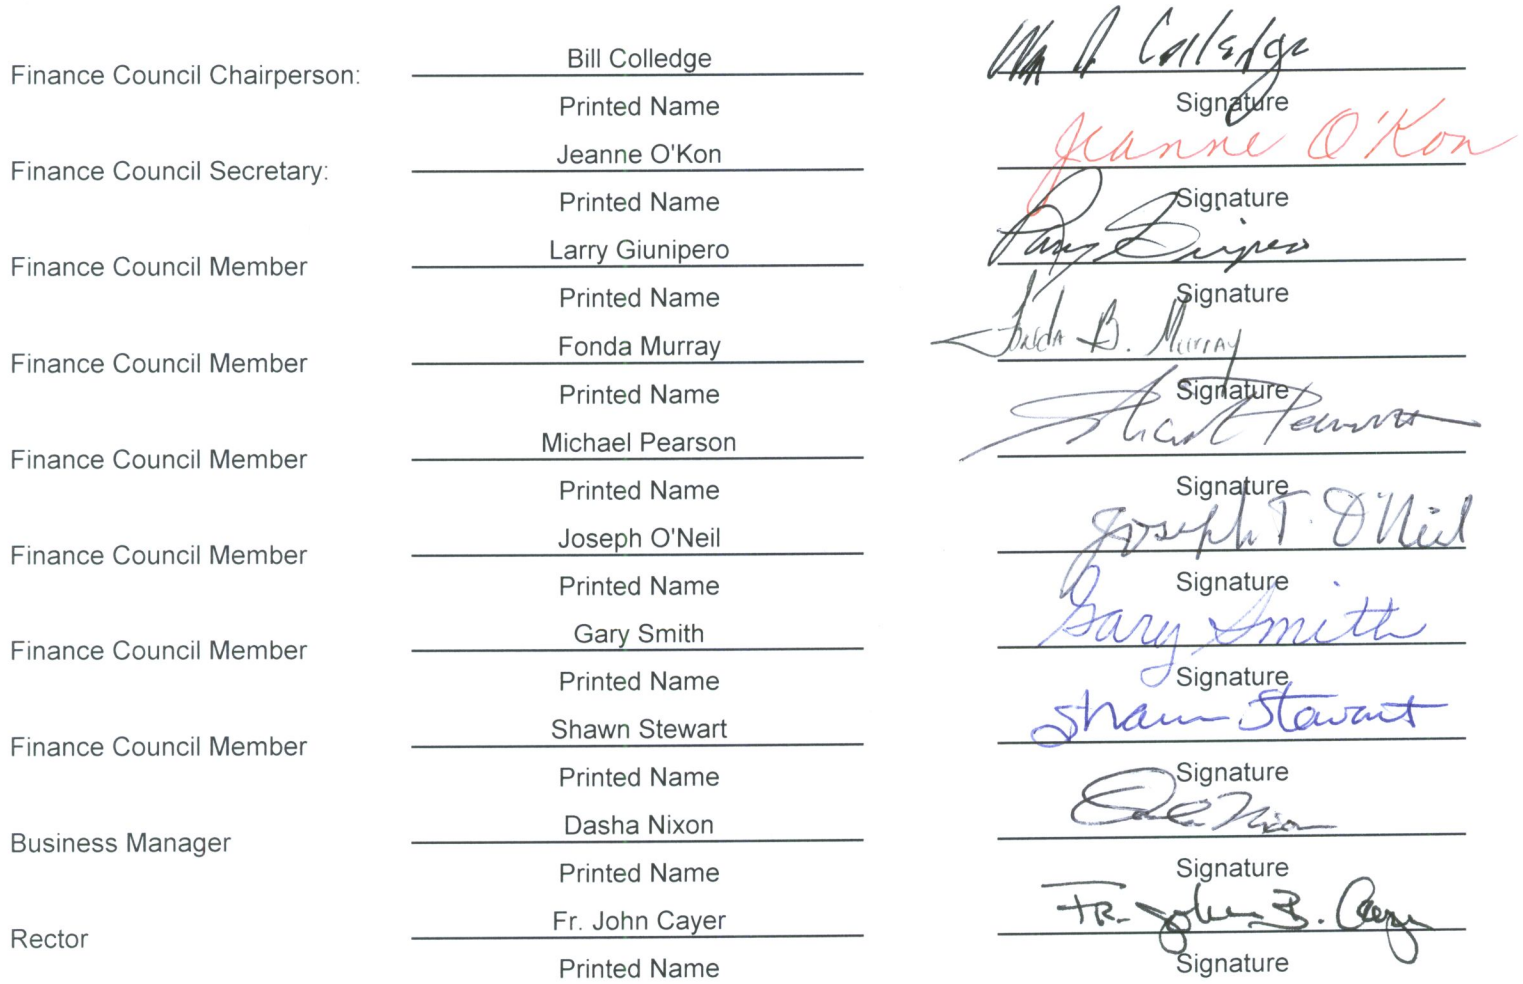 Finance Council Chairperson: Bill Colledge Wm A Colledge
Printed Name Signature
Finance Council Secretary: Jeanne O'Kon Jeanne O'Kon
Printed Name Signature
Finance Council Member Larry Giunipero Larry Giunipero
Printed Name Signature
Finance Council Member Fonda Murray Fonda B. Murray
Printed Name Signature
Finance Council Member Michael Pearson Pearson
Printed Name Signature
Finance Council Member Joseph O'Neil Joseph T. O'Neil
Printed Name Signature
Finance Council Member Gary Smith Gary Smith
Printed Name Signature
Finance Council Member Shawn Stewart Shawn Stewart
Printed Name Signature
Business Manager Dasha Nixon Dasha Nixon
Printed Name Signature
Rector Fr. John Cayer FR. John B. Cayer
Printed Name Signature